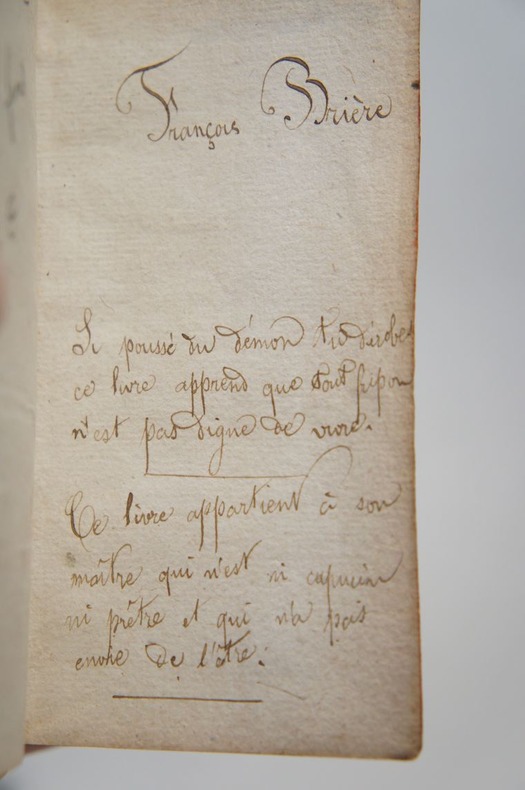 François Brière
Si poussé du démon tu dérobes
ce livre apprend que tout fripon
n'est pas digne de vivre.
Ce livre appartient à son
maître qui n'est ni capucin
ni prêtre et qui n'a pas
envie de l'être.